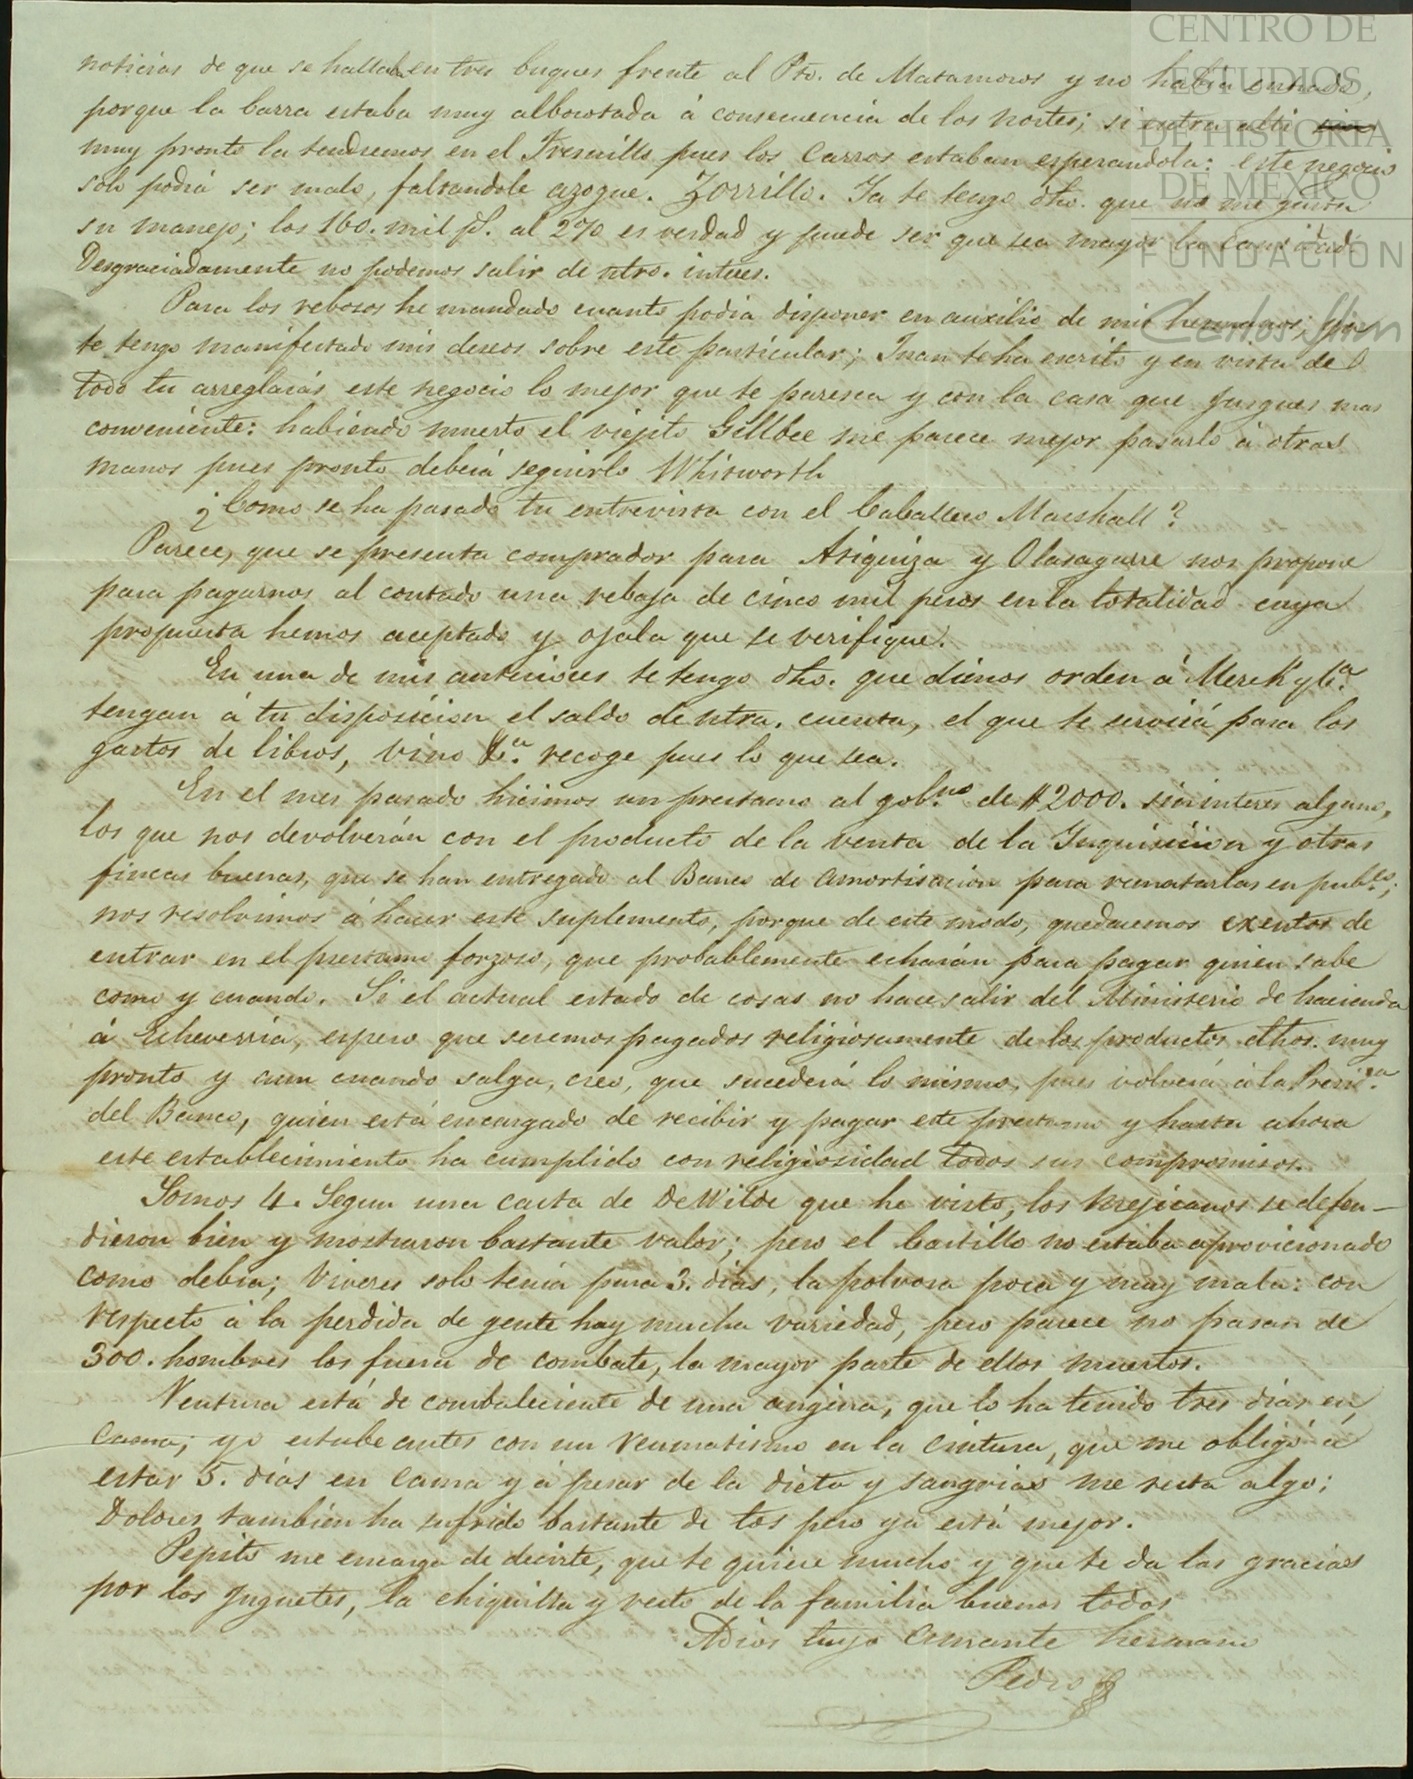 CENTRO DE
ESTUDIOS
DE HISTORIA
DE MÉXICO
FUNDACIÓN
Carlos Slim
noticias de que se hallaba en tres buques frente al Pto. de Matamoros y no había entrado,
porque la barra estaba muy alborotada á consecuencia de los nortes; si entra alli
muy pronto la tendremos en el Fresnillo pues los carros estaban esperandola: este negocio
solo podrá ser malo, faltandole azogue. Zorrillo. Ya te tengo dho. que no me gusta
su manejo; los 160. mil ps. al 2% es verdad y puede ser que sea mayor la cantidad
Desgraciadamente no podemos salir de ntro. interes.
Para los rebosos he mandado cuanto podia disponer en auxilio de mis hermanos; ya
te tengo manifestado mis deseos sobre este particular; Juan te ha escrito y en vista de
todo tu arreglarás este negocio lo mejor que te paresca y con la casa que jusgues mas
conveniente: habiendo muerto el viejito Gillbee me parece mejor pasarlo á otras
manos pues pronto deberá seguirlo Whitworth
¿Como se ha pasado tu entrevista con el Caballero Marshall?
Parece, que se presenta comprador para Atiquiza y Olasagarre nos propone
para pagarnos al contado una rebaja de cinco mil pesos en la totalidad cuya
propuesta hemos aceptado y ojala que se verifique.
En una de mis anteriores te tengo dho. que dimos orden á Merck y Ca.
tengan á tu disposicion el saldo de ntra. cuenta, el que te servirá para los
gastos de libros, vino &a. recoge pues lo que sea.
En el mes pasado hicimos un prestamo al gobno. de $2000. sin interes alguno,
los que nos devolverán con el producto de la venta de la Inquisicion y otras
fincas buenas, que se han entregado al Banco de amortisacion para rematarlas en pubco;
nos resolvimos á hacer este suplemento, porque de este modo, quedaremos exentos de
entrar en el prestamo forzoso, que probablemente echarán para pagar quien sabe
como y cuando. Si el actual estado de cosas no hace salir del Ministerio de hacienda
á Echeverria, espero que seremos pagados religiosamente de los productos dhos. muy
pronto y aun cuando salga, creo, que sucederá lo mismo, pues volverá á la Presida.
del Banco, quien está encargado de recibir y pagar este prestamo y hasta ahora
este establecimiento ha cumplido con religiosidad todos sus compromisos.
Somos 4. Segun una carta de DeWilde que he visto, los Mejicanos se defen-
dieron bien y mostraron bastante valor; pero el Castillo no estaba aprovicionado
como debia; viveres solo tenia para 3. dias, la polvora poca y muy mala: con
respecto á la perdida de gente hay mucha variedad, pero parece no pasan de
300. hombres los fuera de combate, la mayor parte de ellos muertos.
Ventura está de combaleciente de una angina, que lo ha tenido tres dias en
cama; yo estube antes con un reumatismo en la cintura, que me obligó á
estar 5. dias en cama y á pesar de la dieta y sangrias me resta algo;
Dolores tambien ha sufrido bastante de tos pero ya está mejor.
Pepito me encarga de decirte, que te quiere mucho y que te da las gracias
por los juguetes, la chiquilla y resto de la familia buenos todos
Adios tuyo amante hermano
Pedro